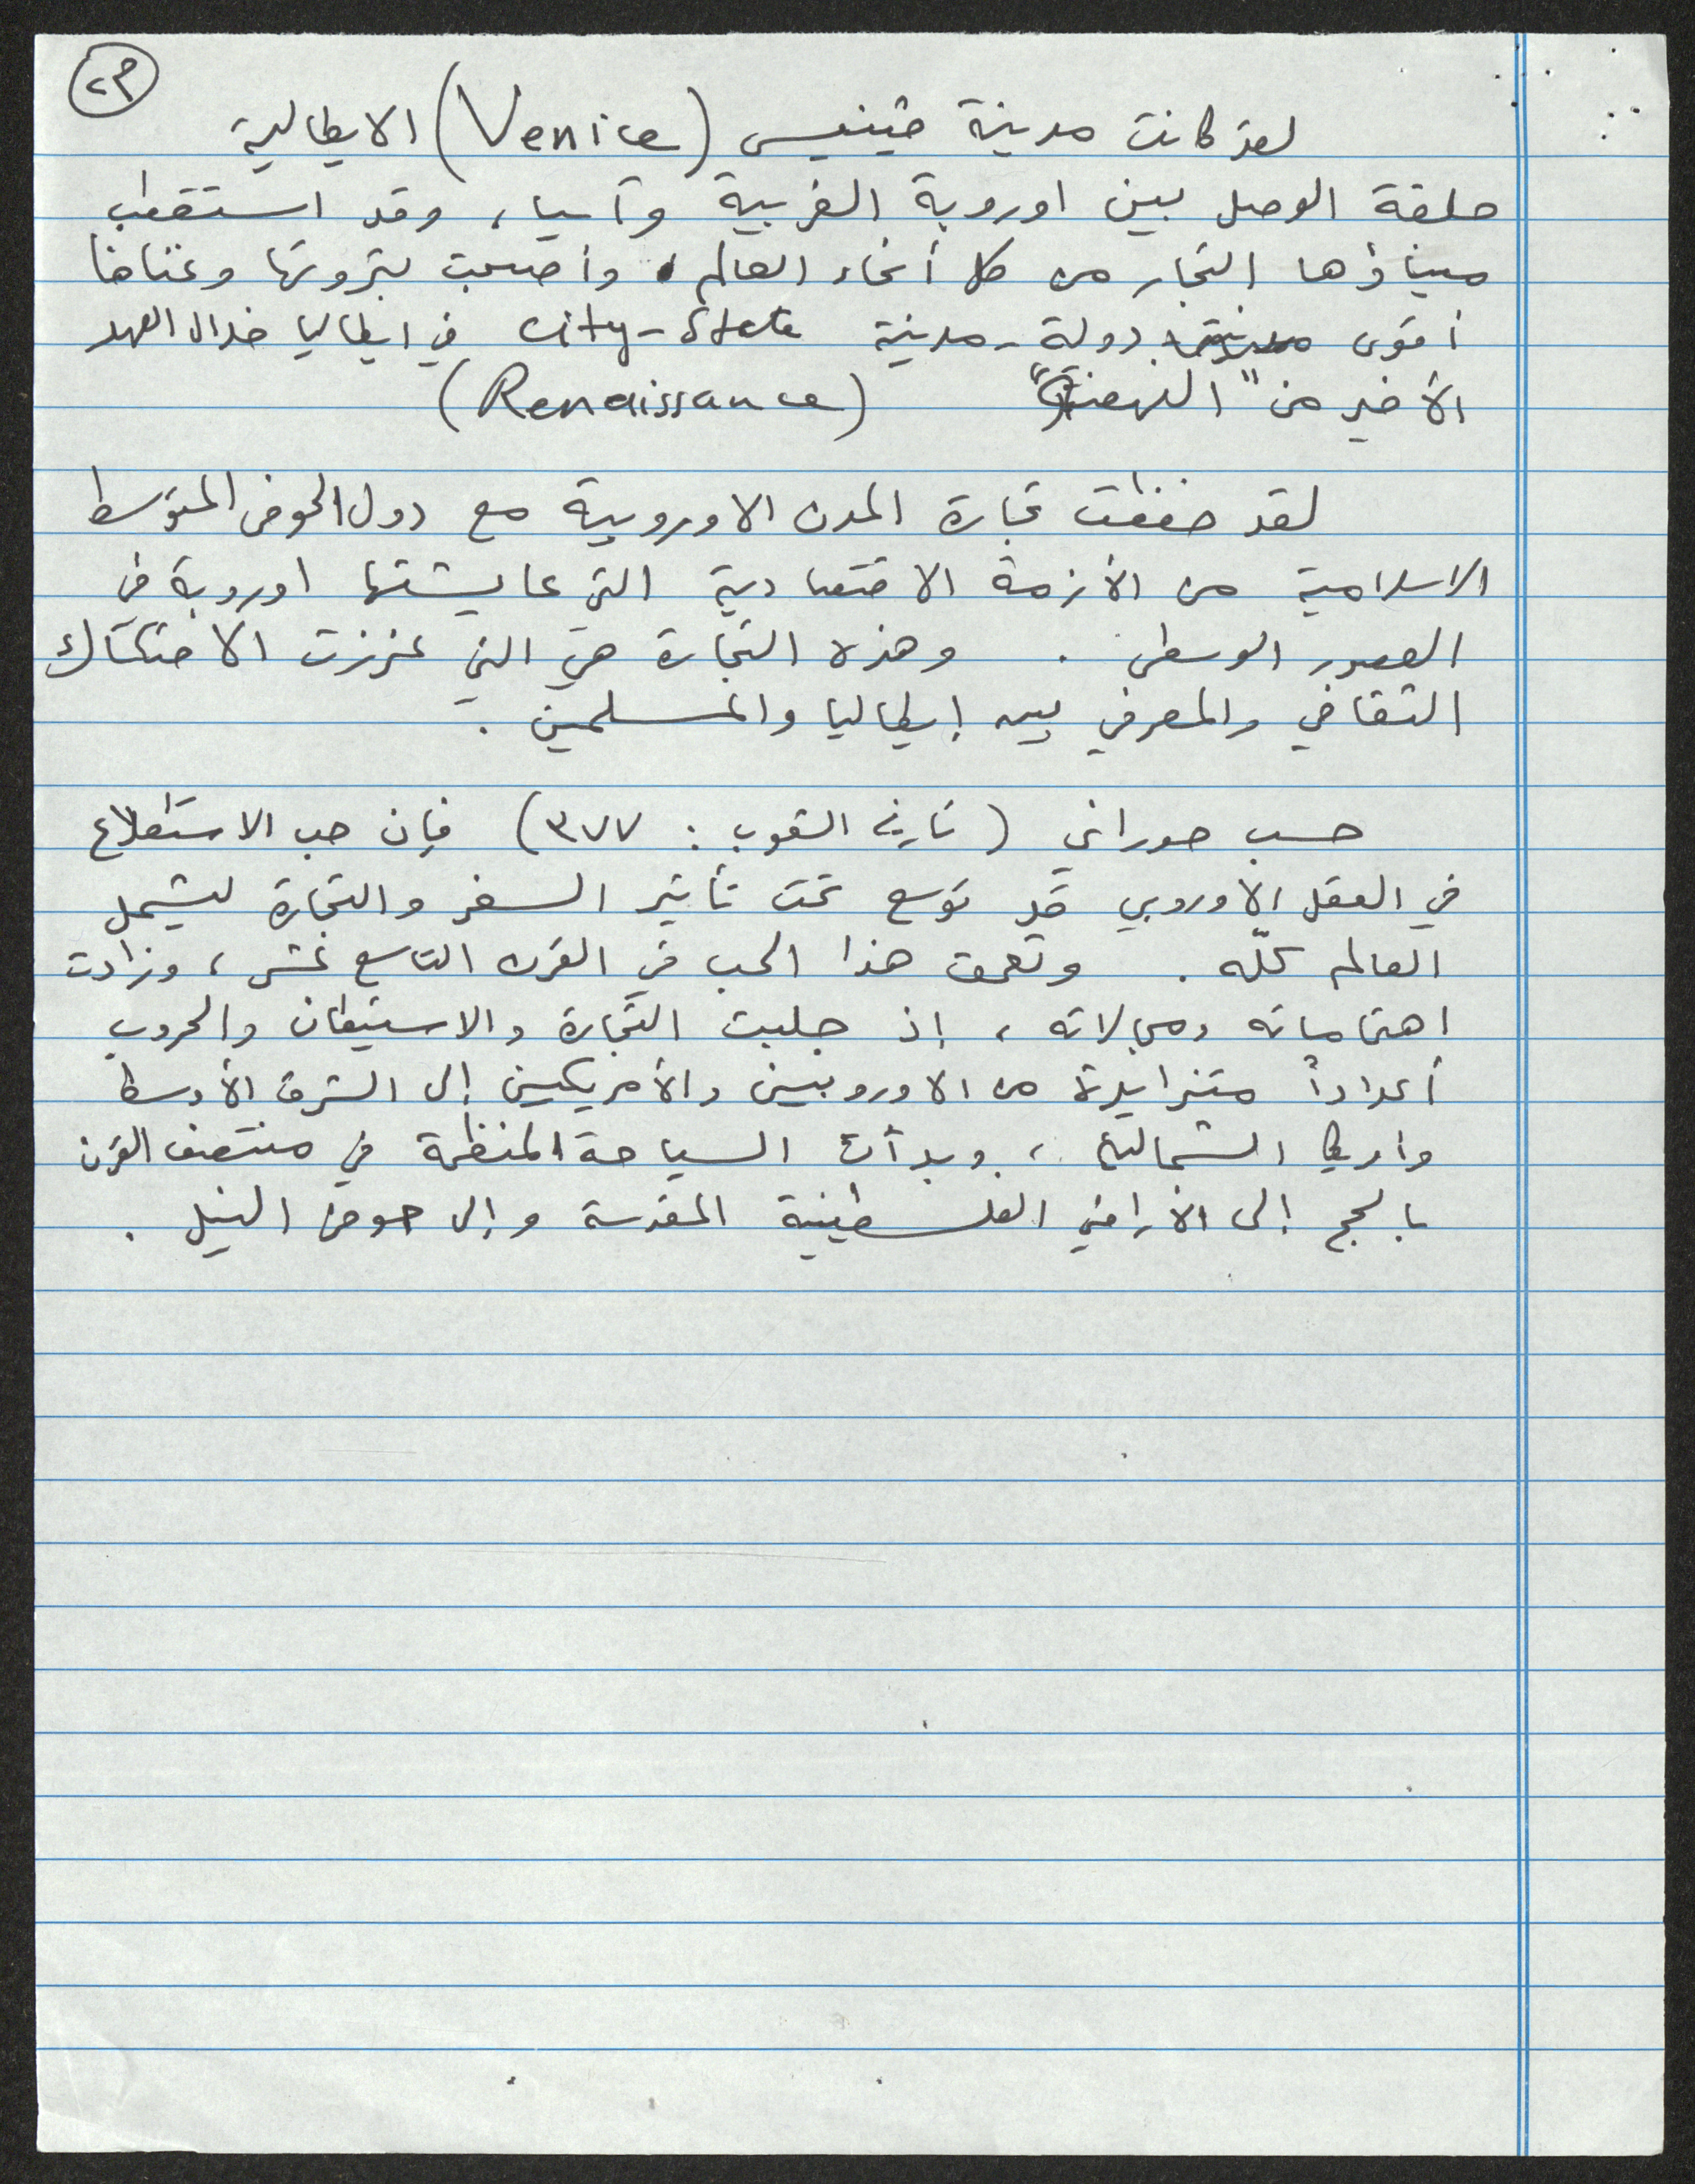 ٢٣
لقد كانت مدينة ڤينيس (Venice) الايطالية
حلقة الوصل بين اوروبة الغربية وآسيا، وقد استقطب
ميناؤها التجار من كل أنحاء العالم، وأصبحت بثروتها وغناها
أقوى دولة-مدينة city-state في ايطاليا خلال العهد
الأخير من "النهضة" (Renaissance)
لقد خففت تجارة المدن الاوروبية مع دول الحوض المتوسط
الاسلامية من الأزمة الاقتصادية التي عايشتها اوروبة في
العصور الوسطى . وهذه التجارة هي التي عززت الاحتكاك
الثقافي والمعرفي بين إيطاليا والمسلمين .
حسب حوراني (تاريخ الشعوب : ٣٧٧) فإن حب الاستطلاع
في العقل الأوروبي قد توسع تحت تأثير السفر والتجارة ليشمل
العالم كلّه . وتعمق هذا الحب في القرن التاسع عشر، وزادت
اهتماماته ومجالاته، إذ جلبت التجارة والاستيطان والحروب
أعداداً متزايدة من الاوروبيين والأمريكيين إلى الشرق الأوسط
وافريقيا الشمالية، وبدأت السياحة المنظمة في منتصف القرن
بالحج إلى الأراضي الفلسطينية المقدسة وإلى حوض النيل .